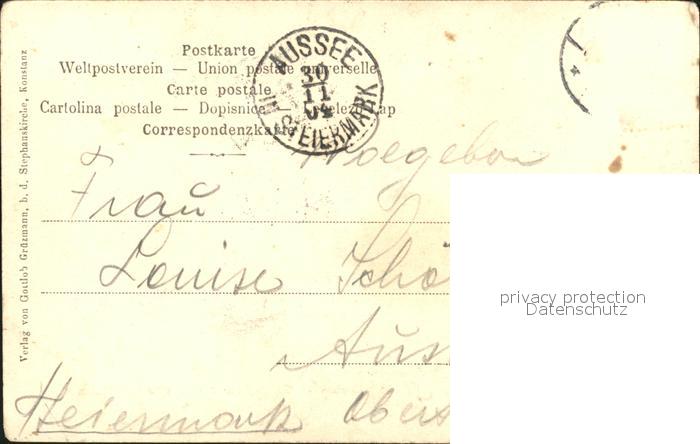 Postkarte
Weltpostverein — Union postale universelle
Carte postale
Cartolina postale — Dopisnice — Levelező-lap
Correspondenzkarte
AUSSEE
30
11
04
STEIERMARK
Frau
Louise Schö
Aus
Steiermark Obers
Verlag von Gottlob Grüzmann, b. d. Stephanskirche, Konstanz
privacy protection
Datenschutz